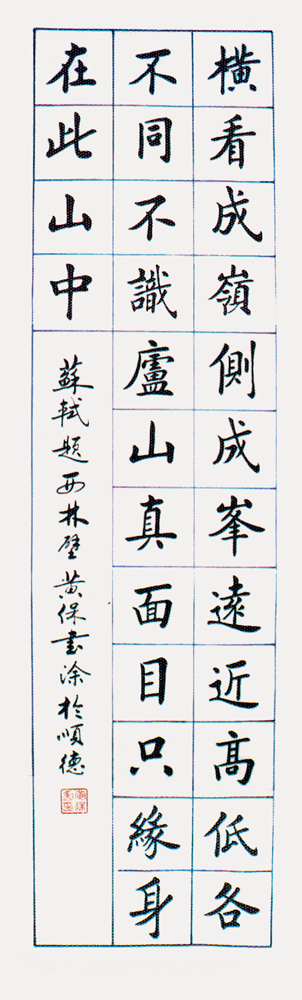 橫看成嶺側成峯遠近高低各
不同不識廬山真面目只緣身
在此山中
蘇軾題西林壁黄保書涂於順德